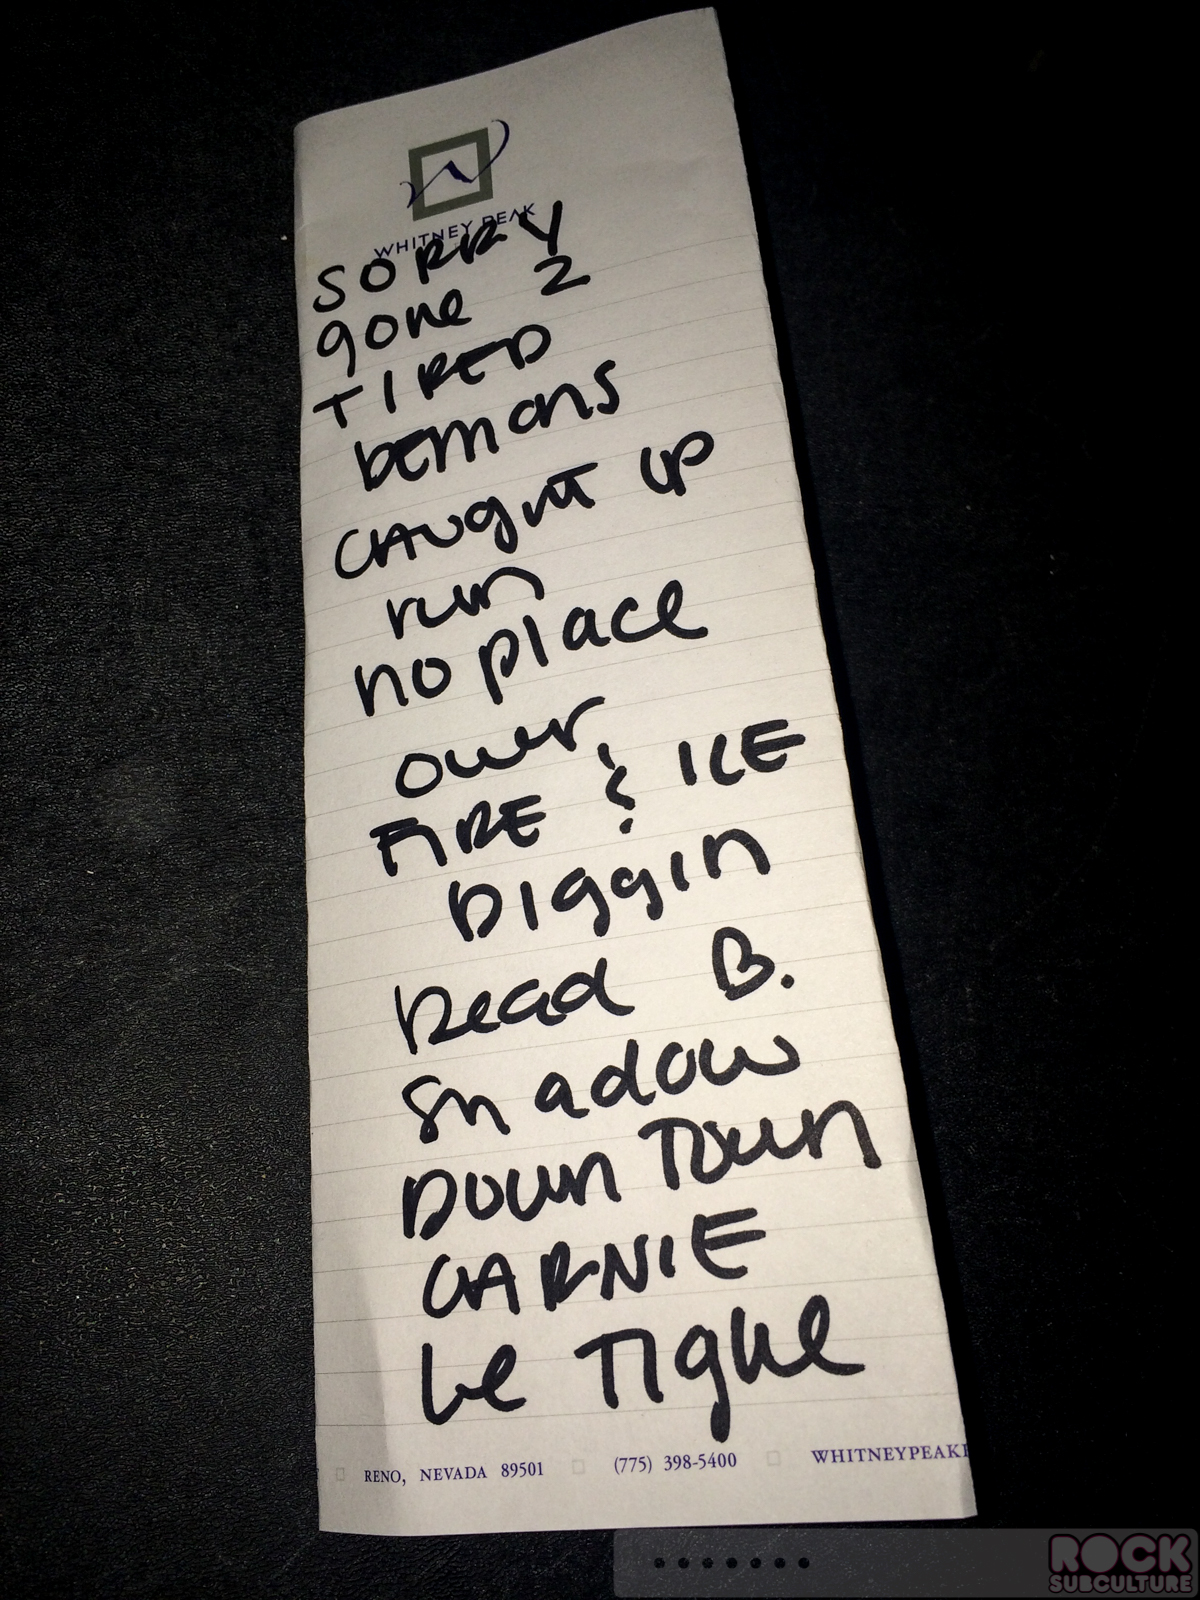 WHITNEY PEAK
SORRY
gone 2
TIRED
DEMONS
CAUGHT UP
run
no place
over
FIRE & ICE
DIggIn
Dead B.
Shadow
DOWN TOWN
CARNIE
Le Tighe
RENO, NEVADA 89501 (775) 398-5400 WHITNEYPEAK
ROCK
SUBCULTURE